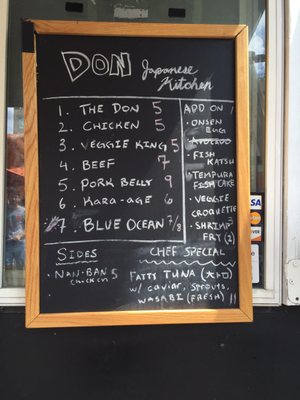 DON Japanese
Kitchen
1. THE DON 5
2. CHICKEN 5
3. VEGGIE KING 5
4. BEEF 7
5. PORK BELLY 9
6. KARA-AGE 6
7. BLUE OCEAN 7/8
ADD ON
• ONSEN
EGG
• AVOCADO
• FISH
KATSU
• TEMPURA
FISH CAKE
• VEGGIE
CROQUETTE
• SHRIMP
FRY (2)
SIDES
• NAN-BAN 5
CHICKEN
CHEF SPECIAL
FATTY TUNA (大トロ)
w/ caviar, sprouts,
WASABI (FRESH) 11